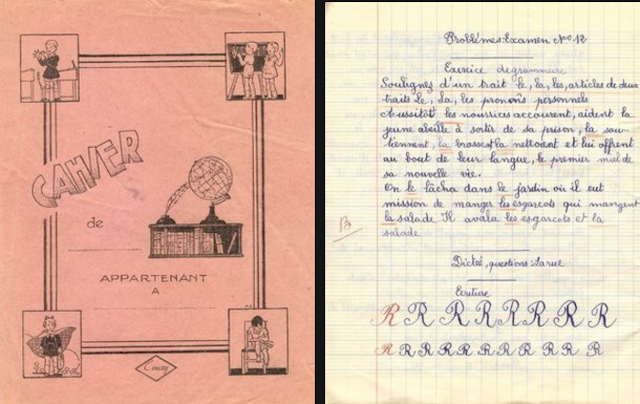 CAHIER
de
APPARTENANT
A
Problèmes-Examen No 12
Exercice de grammaire
Soulignez d'un trait le, la, les, articles de deux
traits le, la, les pronoms personnels
Aussitôt les nourrices accourent, aident la
jeune abeille à sortir de sa prison, la sou-
tiennent, la brossent la nettoient et lui offrent
au bout de leur langue, le premier miel de
sa nouvelle vie.
On le lâcha dans le jardin où il eut
mission de manger les esgarcots qui mangent
la salade Il avala les esgarcots et la
salade
B
Dictée, questions:
Ecriture
R R R R R R R R
R R R R R R R R R R R